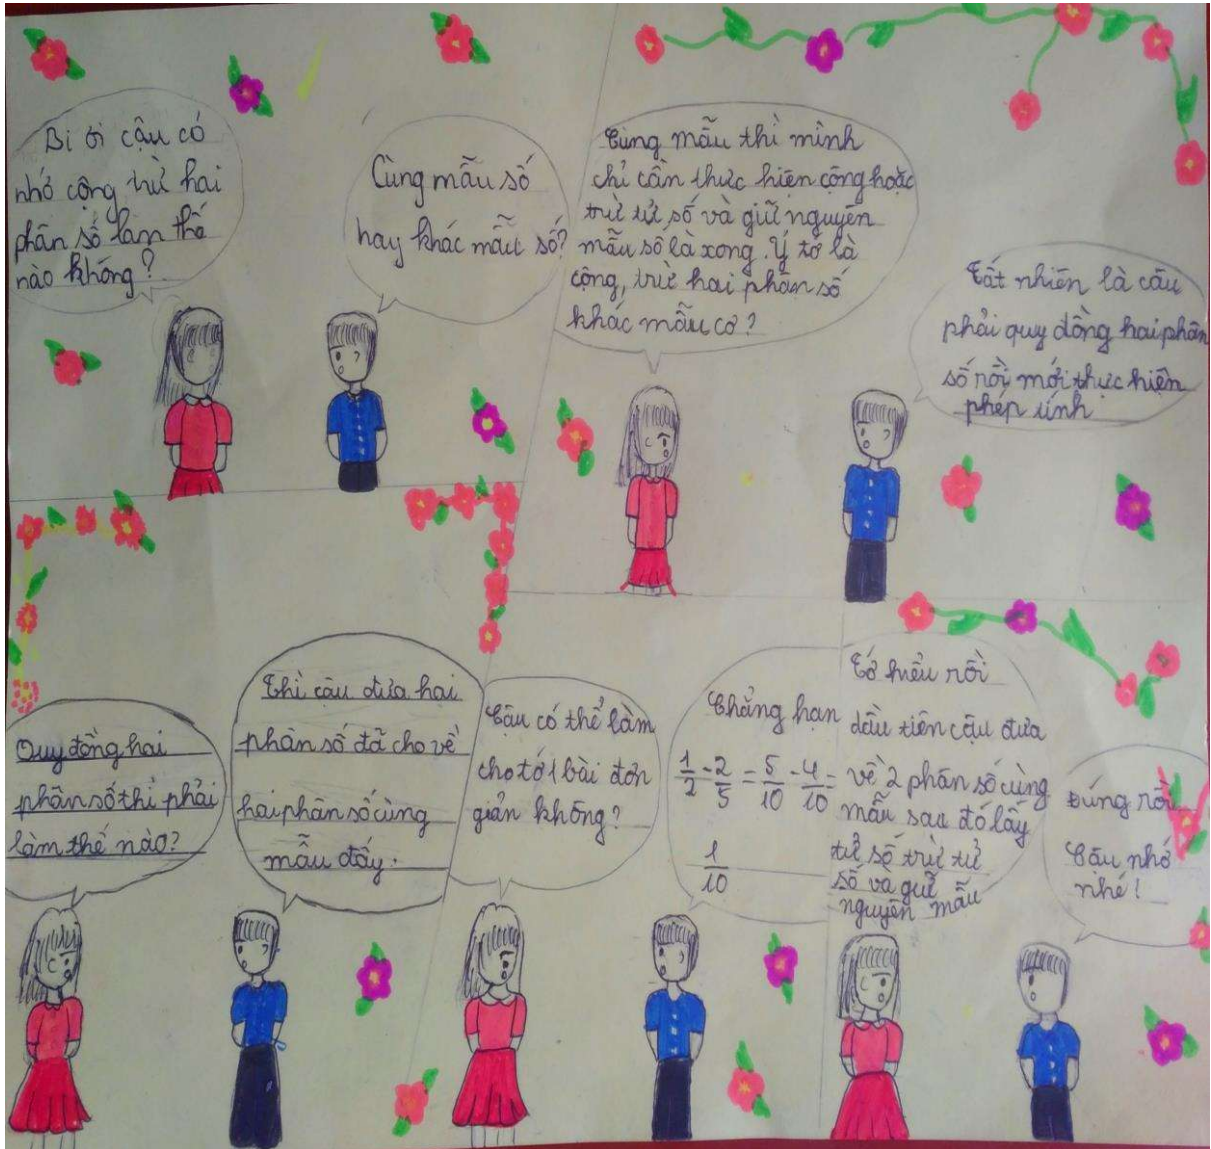 Bi ơi cậu có
nhớ cộng trừ hai
phân số làm thế
nào không?
Cùng mẫu số
hay khác mẫu số?
Cùng mẫu thì mình
chỉ cần thực hiện cộng hoặc
trừ tử số và giữ nguyên
mẫu số là xong. Ý tớ là
cộng, trừ hai phân số
khác mẫu cơ?
Tất nhiên là cậu
phải quy đồng hai phân
số rồi mới thực hiện
phép tính
Quy đồng hai
phân số thì phải
làm thế nào?
Thì cậu đưa hai
phân số đã cho về
hai phân số cùng
mẫu đấy.
Cậu có thể làm
cho tớ 1 bài đơn
giản không?
Chẳng hạn
1/2 - 2/5 = 5/10 - 4/10 =
1/10
Tớ hiểu rồi
đầu tiên cậu đưa
về 2 phân số cùng
mẫu sau đó lấy
tử số trừ tử
số và giữ
nguyên mẫu
Đúng rồi
Cậu nhớ
nhé!